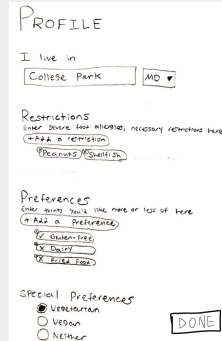 PROFILE
I live in
College Park MD ▾
Restrictions
Enter severe food allergies, necessary restrictions here
+ Add a restriction
Peanuts Shellfish
Preferences
Enter things you'd like more or less of here
+ Add a Preference
Gluten-Free
Dairy
Fried Food
Special Preferences
Vegetarian
Vegan
Neither
DONE